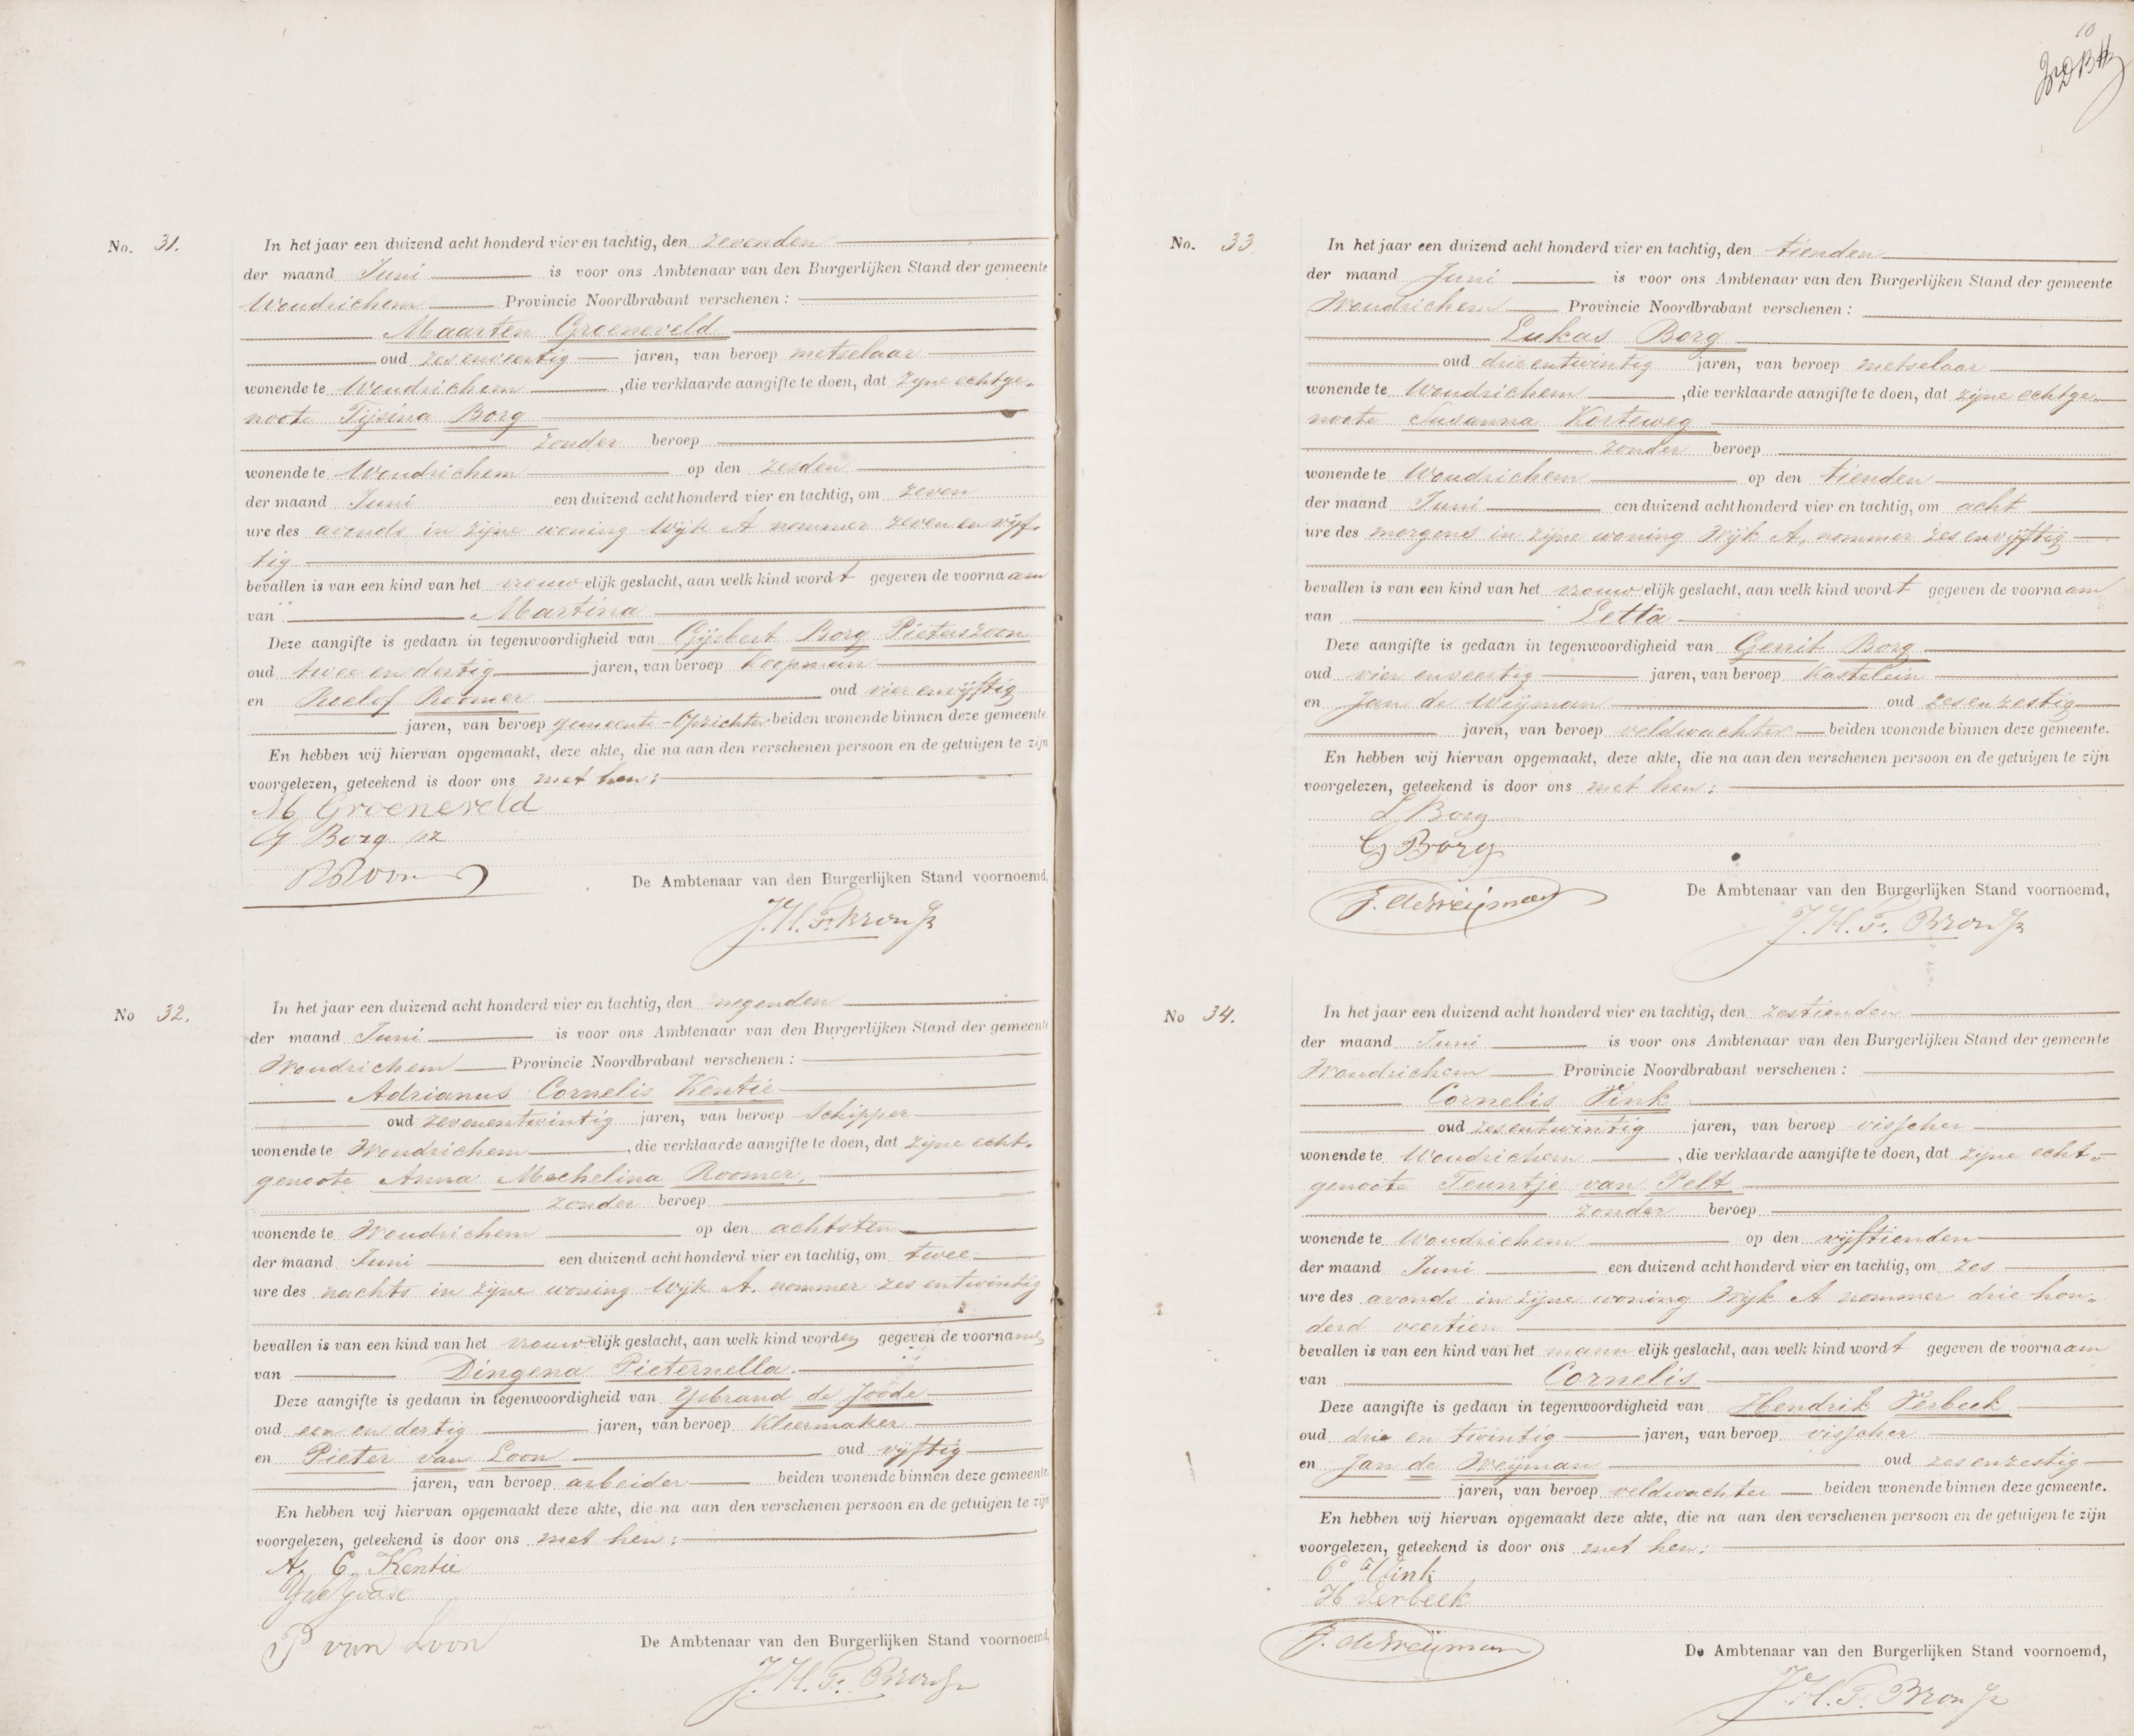 No. 31.
In het jaar een duizend acht honderd vier en tachtig, den zevenden
der maand Juni is voor ons Ambtenaar van den Burgerlijken Stand der gemeente
Woudrichem Provincie Noordbrabant verschenen :
Maarten Groeneveld
oud zesenveertig jaren, van beroep metselaar
wonende te Woudrichem , die verklaarde aangifte te doen, dat zijne echtge-
noote Tijsina Borg
zonder beroep
wonende te Woudrichem op den zesden
der maand Juni een duizend acht honderd vier en tachtig, om zeven
ure des avonds in zijne woning Wijk A nommer zeven en vijf-
tig
bevallen is van een kind van het vrouwelijk geslacht, aan welk kind wordt gegeven de voornaam
van Martina
Deze aangifte is gedaan in tegenwoordigheid van Gijsbert Borg Pieterszoon
oud twee en dertig jaren, van beroep Koopman
en Roelof Roomer oud vier en vijftig
jaren, van beroep gemeente- beiden wonende binnen deze gemeente
En hebben wij hiervan opgemaakt, deze akte, die na aan den verschenen persoon en de getuigen te zijn
voorgelezen, geteekend is door ons met hen :
M Groeneveld
G Borg pz
De Ambtenaar van den Burgerlijken Stand voornoemd,
No 32.
In het jaar een duizend acht honderd vier en tachtig, den negenden
der maand Juni is voor ons Ambtenaar van den Burgerlijken Stand der gemeente
Woudrichem Provincie Noordbrabant verschenen :
Adrianus Cornelis Kentie
oud zevenentwintig jaren, van beroep Schipper
wonende te Woudrichem , die verklaarde aangifte te doen, dat zijne echt-
genoote Anna Mechelina Roomer,
zonder beroep
wonende te Woudrichem op den achtsten
der maand Juni een duizend acht honderd vier en tachtig, om twee
ure des nachts in zijne woning Wijk A. nommer zes en twintig
bevallen is van een kind van het vrouwelijk geslacht, aan welk kind worden gegeven de voornamen
van Dingena Pieternella.
Deze aangifte is gedaan in tegenwoordigheid van Ysbrand de Joode
oud een en dertig jaren, van beroep Kleermaker
en Pieter van Loon oud vijftig
jaren, van beroep arbeider beiden wonende binnen deze gemeente.
En hebben wij hiervan opgemaakt deze akte, die na aan den verschenen persoon en de getuigen te zijn
voorgelezen, geteekend is door ons met hen :
A. C. Kentie
Y de Joode
P van Loon
De Ambtenaar van den Burgerlijken Stand voornoemd,
10
No. 33
In het jaar een duizend acht honderd vier en tachtig, den tienden
der maand Juni is voor ons Ambtenaar van den Burgerlijken Stand der gemeente
Woudrichem Provincie Noordbrabant verschenen :
Lukas Borg
oud drieentwintig jaren, van beroep metselaar
wonende te Woudrichem , die verklaarde aangifte te doen, dat zijne echtge-
noote Susanna Korteweg
zonder beroep
wonende te Woudrichem op den tienden
der maand Juni een duizend acht honderd vier en tachtig, om acht
ure des morgens in zijne woning Wijk A, nommer zes en vijftig
bevallen is van een kind van het vrouwelijk geslacht, aan welk kind wordt gegeven de voornaam
van Letta
Deze aangifte is gedaan in tegenwoordigheid van Gerrit Borg
oud vier en veertig jaren, van beroep Kastelein
en Jan de Weijman oud zesenzestig
jaren, van beroep veldwachter beiden wonende binnen deze gemeente.
En hebben wij hiervan opgemaakt, deze akte, die na aan den verschenen persoon en de getuigen te zijn
voorgelezen, geteekend is door ons met hen :
L Borg
G Borg
J. de Weijman
De Ambtenaar van den Burgerlijken Stand voornoemd,
No 34.
In het jaar een duizend acht honderd vier en tachtig, den zestienden
der maand Juni is voor ons Ambtenaar van den Burgerlijken Stand der gemeente
Woudrichem Provincie Noordbrabant verschenen :
Cornelis Vink
oud zesentwintig jaren, van beroep visscher
wonende te Woudrichem , die verklaarde aangifte te doen, dat zijne echt-
genoote Teuntje van Pelt
zonder beroep
wonende te Woudrichem op den vijftienden
der maand Juni een duizend acht honderd vier en tachtig, om zes
ure des avonds in zijne woning Wijk A nommer drie hon-
derd veertien
bevallen is van een kind van het mannelijk geslacht, aan welk kind wordt gegeven de voornaam
van Cornelis
Deze aangifte is gedaan in tegenwoordigheid van Hendrik Verbeek
oud drie en twintig jaren, van beroep visscher
en Jan de Weijman oud zesenzestig
jaren, van beroep veldwachter beiden wonende binnen deze gemeente.
En hebben wij hiervan opgemaakt deze akte, die na aan den verschenen persoon en de getuigen te zijn
voorgelezen, geteekend is door ons met hen :
C Vink
H Verbeek
J. de Weijman
De Ambtenaar van den Burgerlijken Stand voornoemd,